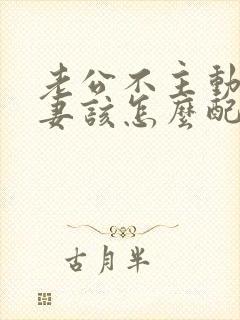 老公不主動
妻該怎麼配
古月半